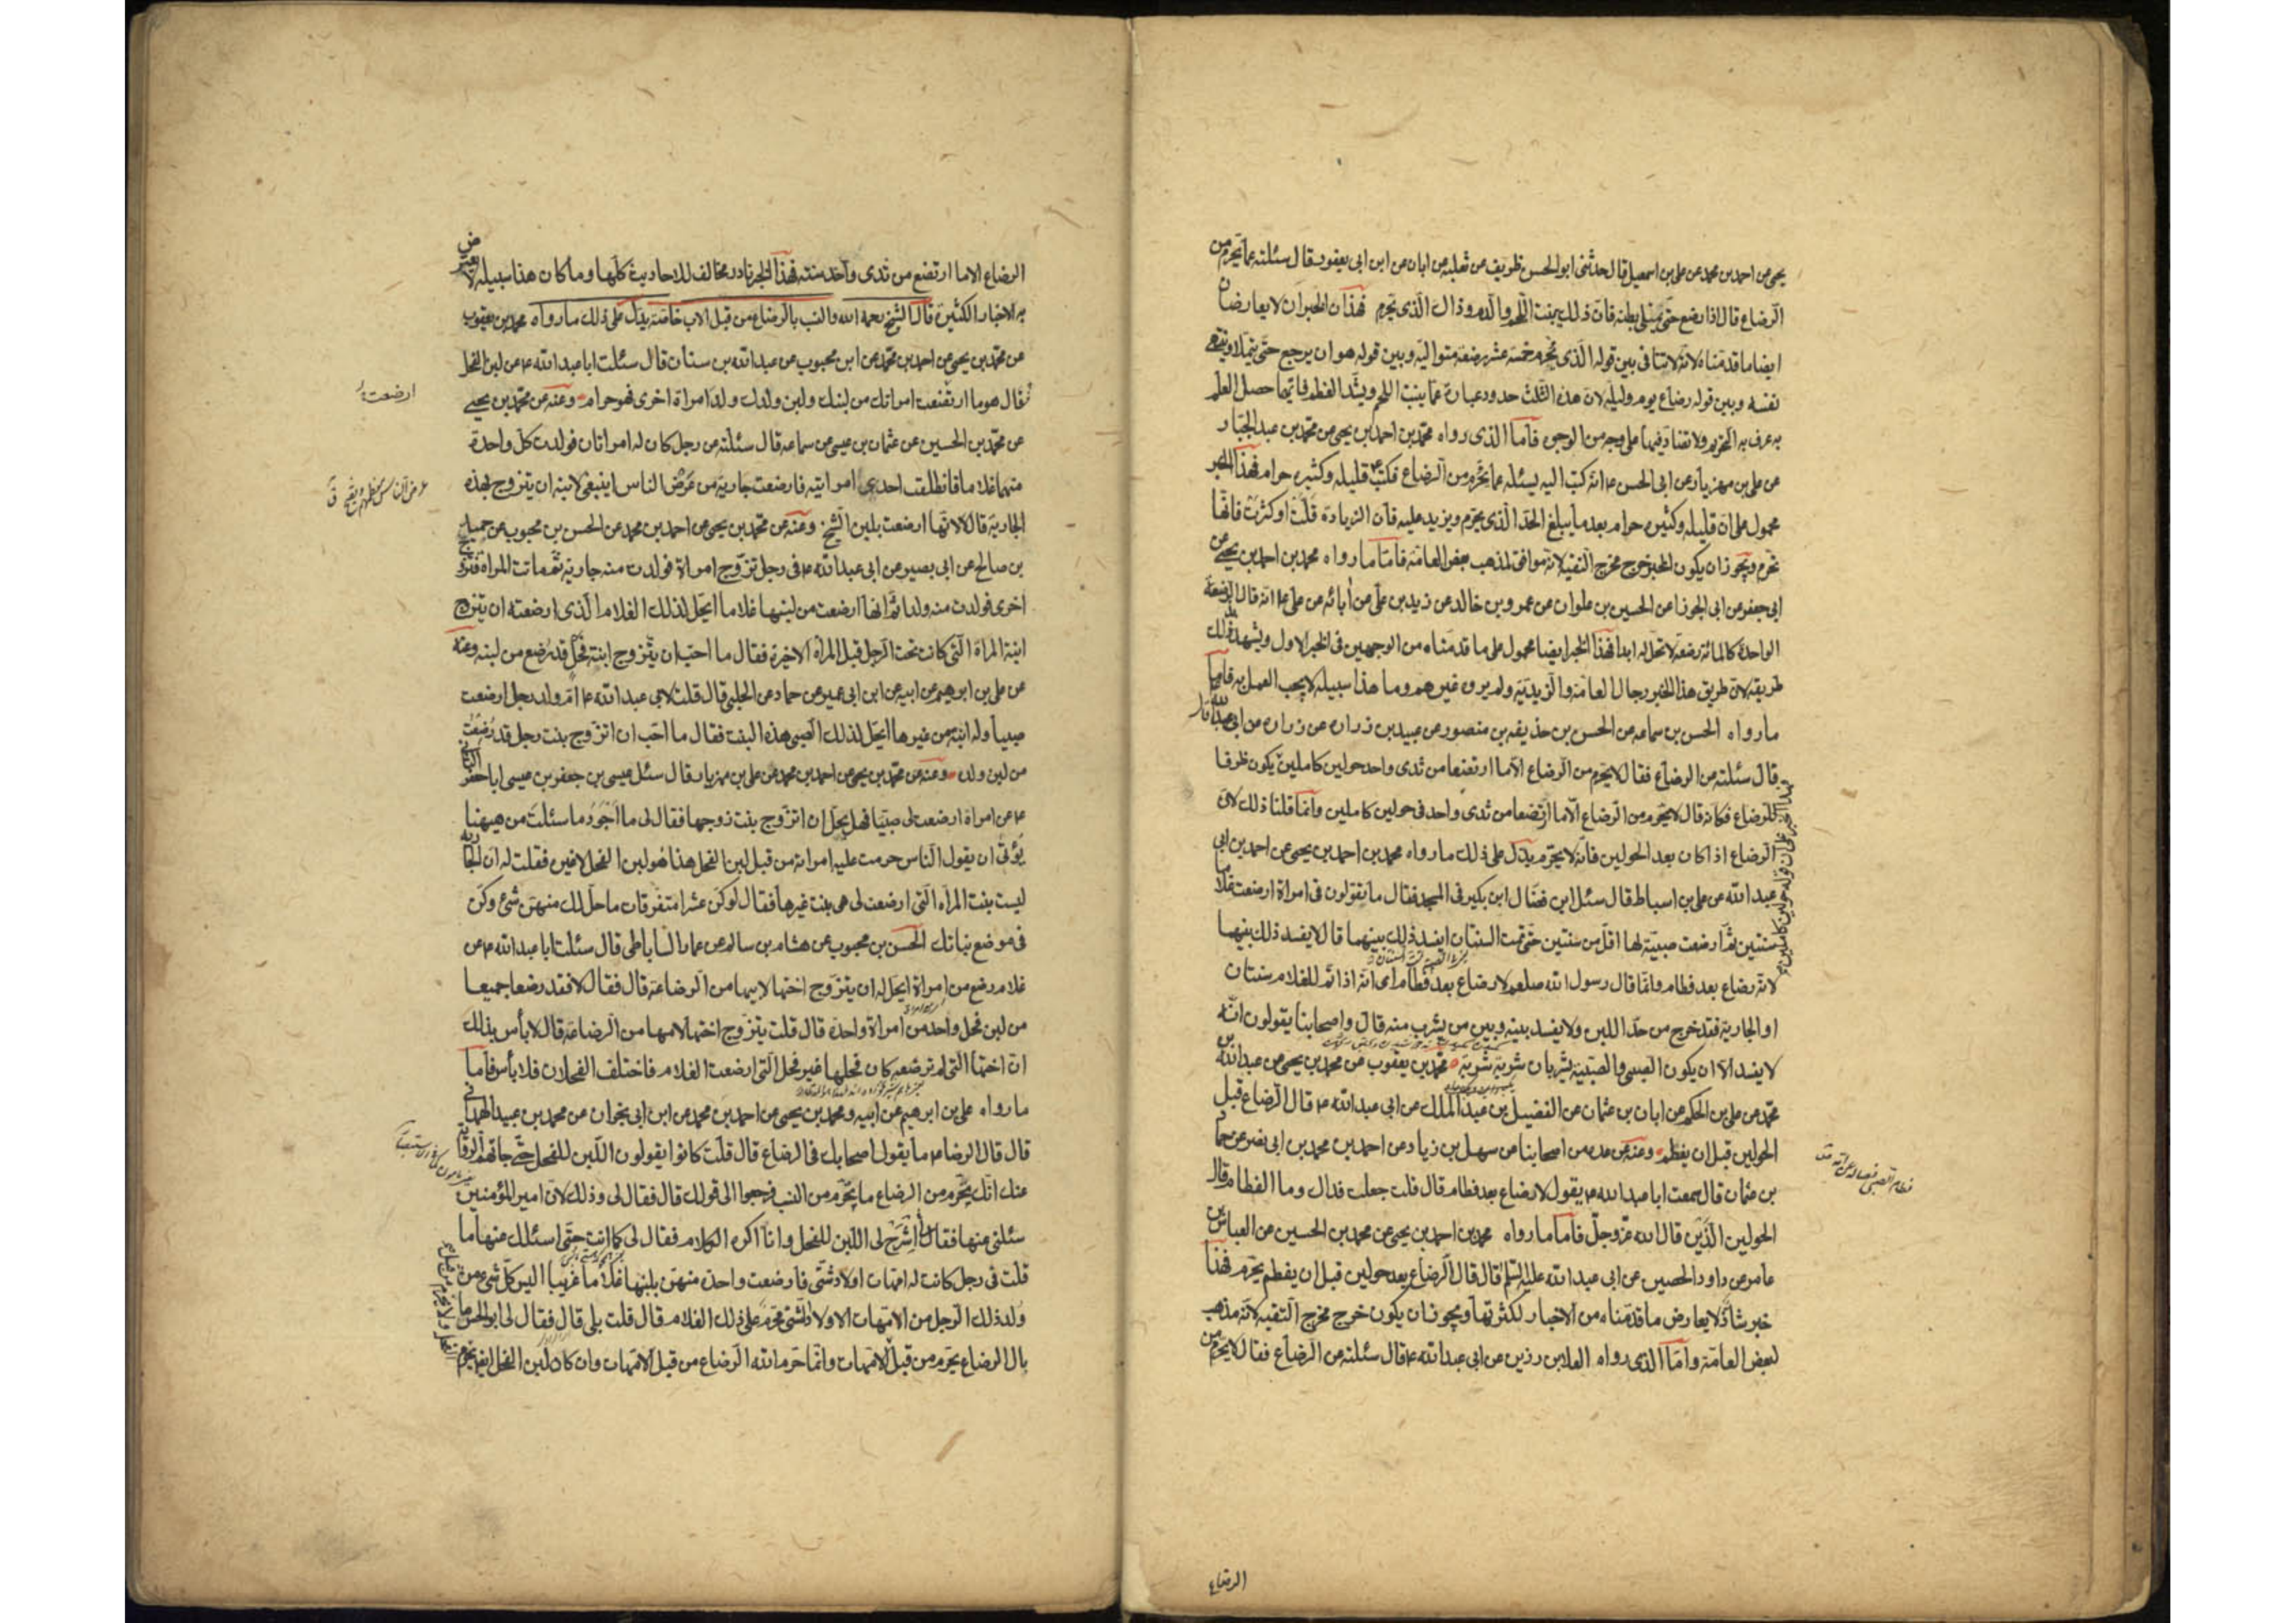 يحيى عن احمد بن محمد عن علي بن اسمعيل قال حدثنى ابو الحسن ظريف عن ثعلبة عن ابان عن ابن ابى يعفور قال سئلته عما يحرم من
الرضاع قال اذا رضع حتى يمتلى بطنه فان ذلك ينبت اللحم والدم وذاك الذى يحرم فهذان الخبران لا يعارضان
ايضا ما قدمناه لانه لا تنافى بين قوله الذى يحرم خمسة عشر رضعة متوالية وبين قوله هو ان يرجع حتى يتملا وينتهى
نفسه وبين قوله رضاع يوم وليلة لان هذه الثلث حدود عبارة عما ينبت اللحم ويشد العظم فايها حصل العلم
به عرف به التحريم ولا تضاد فيها على وجه من الوجوه فاما الذى رواه محمد بن احمد بن يحيى عن محمد بن عبد الجبار
عن علي بن مهزيار عن ابى الحسن ع انه كتب اليه يسئله عما يحرم من الرضاع فكتب ع قليله وكثيره حرام فهذا الخبر
محمول على ان قليله وكثيره حرام بعد ما يبلغ الحد الذى يحرم ويزيد عليه فان الزيادة قلت او كثرت فانها
تحرم ويجوز ان يكون الخبر خرج مخرج التقية لانه موافق لمذهب بعض العامة فاما ما رواه محمد بن احمد بن يحيى عن
ابى جعفر عن ابى الجوزا عن الحسين بن علوان عن عمرو بن خالد عن زيد بن على عن آبائه عن على ع انه قال الرضعة
الواحدة كالمائة رضعة لا تحل له ابدا فهذا الخبر ايضا محمول على ما قدمناه من الوجهين فى الخبر الاول ويشهد بذلك
طريقه لان طريق هذا الخبر رجال العامة والزيدية ولم يروه غيرهم وما هذا سبيله لا يجب العمل به فاما
ما رواه الحسن بن سماعه عن الحسن بن حذيفه بن منصور عن عبيد بن زراره عن زراره عن ابى عبد الله ع
قال سئلته عن الرضاع فقال لا يحرم من الرضاع الا ما ارتضعا من ثدى واحد حولين كاملين يكون ظرفا
للرضاع فكانه قال لا يحرم من الرضاع الا ما ارتضعا من ثدى واحد فى حولين كاملين وانما قلنا ذلك لان
الرضاع اذا كان بعد الحولين فانه لا يحرم يدل على ذلك ما رواه محمد بن احمد بن يحيى عن احمد بن ابى
عبد الله عن علي بن اسباط قال سئل ابن فضال ابن بكير فى المسجد فقال ما تقولون فى امراة ارضعت غلاما
سنتين ثم ارضعت صبية لها اقل من سنتين حتى تمت السنتان ايفسد ذلك بينهما قال لا يفسد ذلك بينهما
لانه رضاع بعد فطام وانما قال رسول الله صلعم لا رضاع بعد فطام اى انه اذا تم للغلام سنتان
او الجارية فقد خرج من حد اللبن ولا يفسد بينه وبين من يشرب منه قال واصحابنا يقولون انه
لا يفسد الا ان يكون الصبى والصبية يشربان شربة شربة محمد بن يعقوب عن محمد بن يحيى عن عبد الله بن
محمد عن علي بن الحكم عن ابان بن عثمان عن الفضيل بن عبد الملك عن ابى عبد الله ع قال الرضاع قبل
الحولين قبل ان يفطم وعنه عن عدة من اصحابنا عن سهل بن زياد عن احمد بن محمد بن ابى نصر عن حماد
بن عثمان قال سمعت ابا عبد الله ع يقول لا رضاع بعد فطام قال قلت جعلت فداك وما الفطام قال
الحولين الذين قال الله عز وجل فاما ما رواه محمد بن احمد بن يحيى عن محمد بن الحسين عن العباس بن
عامر عن داود الحصين عن ابى عبد الله عليه السلم قال قال الرضاع بعد حولين قبل ان يفطم يحرم فهذا
خبر شاذ لا يعارض ما قدمناه من الاخبار لكثرتها ويجوز ان يكون خرج مخرج التقية لانه مذهب
لبعض العامة واما الذى رواه العلا بن رزين عن ابى عبد الله ع قال سئلته عن الرضاع فقال لا يحرم من
الرضاع
الرضاع الا ما ارتضع من ثدى واحد سنة فهذا الخبر نادر مخالف للاحاديث كلها وما كان هذا سبيله لا يعترض
به الاخبار الكثيرة قال الشيخ رحمه الله والنسب بالرضاع من قبل الاب خاصة يدل على ذلك ما رواه محمد بن يعقوب
عن محمد بن يحيى عن احمد بن محمد عن ابن محبوب عن عبد الله بن سنان قال سئلت ابا عبد الله ع عن لبن الفحل
فقال هو ما ارتضعت امراتك من لبنك ولبن ولدك ولد امراة اخرى فهو حرام وعنه عن محمد بن يحيى
ارضعت
عن محمد بن الحسين عن عثمان بن عيسى عن سماعه قال سئلته عن رجل كان له امراتان فولدت كل واحدة
منهما غلاما فانطلقت احدى امراتيه فارضعت جارية من عرض الناس اينبغى لابنه ان يتزوج بهذه
الجارية قال لا لانها ارضعت بلبن الشيخ وعنه عن محمد بن يحيى عن احمد بن محمد عن الحسن بن محبوب عن جميل
بن صالح عن ابى بصير عن ابى عبد الله ع فى رجل تزوج امراة فولدت منه جارية ثم ماتت المراة فتزوج
اخرى فولدت منه ولدا ثم انها ارضعت من لبنها غلاما ايحل لذلك الغلام الذى ارضعته ان يتزوج
ابنة المراة التى كانت تحت الرجل قبل المراة الاخيرة فقال ما احب ان يتزوج ابنة فحل قد رضع من لبنه وعنه
عن علي بن ابرهيم عن ابيه عن ابن ابى عمير عن حماد عن الحلبى قال قلت لابى عبد الله ع ام ولد رجل ارضعت
صبيا وله ابنة من غيرها ايحل لذلك الصبى هذه البنت فقال ما احب ان اتزوج بنت رجل قد رضعت
من لبن ولده وعنه عن محمد بن يحيى عن احمد بن محمد عن علي بن مهزيار قال سئل عيسى بن جعفر بن عيسى ابا جعفر الثانى
ع عن امراة ارضعت لى صبيا فهل يحل ان اتزوج بنت زوجها فقال لى ما اجود ما سئلت من هيهنا
يؤتى ان يقول الناس حرمت عليه امراته من قبل لبن الفحل هذا هو لبن الفحل لا غير فقلت له ان الجارية
ليست بنت المراة التى ارضعت لى هى بنت غيرها فقال لو كن عشرا متفرقات ما حل لك منهن شىء وكن
فى موضع بناتك الحسن بن محبوب عن هشام بن سالم عن عمار الساباطى قال سئلت ابا عبد الله ع عن
غلام رضع من امراة ايحل له ان يتزوج اختها لابيها من الرضاعة قال فقال لا فقد رضعا جميعا
من لبن فحل واحد من امراة واحدة قال قلت يتزوج اختها لامها من الرضاعة قال لا باس بذلك
ان اختها التى لم ترضعه كان فحلها غير فحل التى ارضعت الغلام فاختلف الفحلان فلا بأس فاما
ما رواه علي بن ابرهيم عن ابيه ومحمد بن يحيى عن احمد بن محمد عن ابن ابى نجران عن محمد بن عبيد الهمدانى
قال قال الرضا ع ما يقول اصحابك فى الرضاع قال قلت كانوا يقولون اللبن للفحل حتى جاءتهم الرواية
عنك انك تحرم من الرضاع ما يحرم من النسب فرجعوا الى قولك قال فقال لى وذلك لان امير المؤمنين
سئلنى عنها فقال اشرح لى اللبن للفحل وانا اكره الكلام فقال لى كما انت حتى اسئلك عنها ما
قلت فى رجل كانت له امهات اولاد شتى فارضعت واحدة منهن بلبنها غلاما غريبا اليس كل شىء من
ولد ذلك الرجل من الامهات الاولاد الشتى محرم على ذلك الغلام قال قلت بلى قال فقال لى ابو الحسن ما
بال الرضاع يحرم من قبل الامهات وانما حرم الله الرضاع من قبل الامهات وان كان لبن الفحل ايضا يحرم